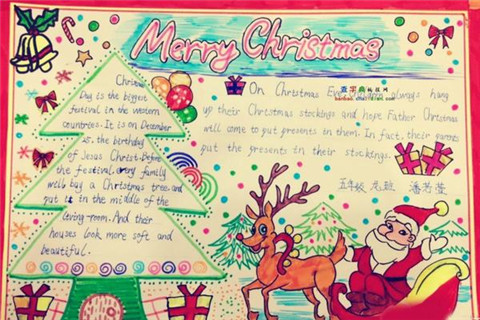 Merry Christmas
Christmas
Day is the biggest
festival in the western
countries. It is on December
is. the birthday
of Jesus Christ. Before
the festival, every family
will buy a Christmas tree and
put it in the middle of the
living-room. And their
houses look more soft and
beautiful.
On Christmas Eve, children always hang
up their Christmas stockings and hope Father Christmas
will come to put presents in them. In fact, their parents
put the presents in their stockings.
五年级